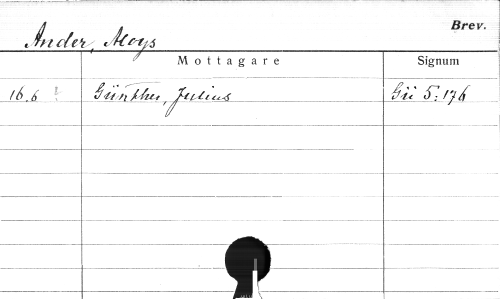 Brev.
Ander, Aloys
Mottagare Signum
16.6 Günther, Julius Gü 5:176